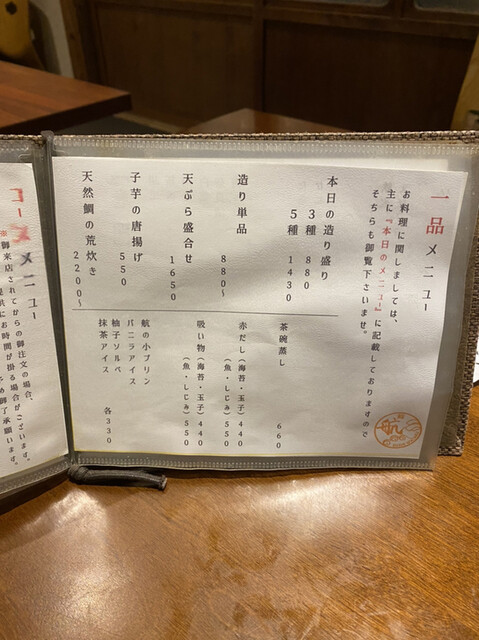 一品メニュー
お料理に関しましては、
主に『本日のメニュー』に記載しておりますので
そちらも御覧下さいませ。
本日の造り盛り
3種 880
5種 1430
造り単品
880~
天ぷら盛合せ
1650
子芋の唐揚げ
550
天然鯛の荒炊き
2200~
茶碗蒸し
660
赤だし(海苔・玉子)440
(魚・しじみ)550
吸い物(海苔・玉子)440
(魚・しじみ)550
航の小プリン
バニラアイス
柚子ソルベ
抹茶アイス
各330
コースメニュー
※御来店されてからの御注文の場合、
提供にお時間が掛る場合がございます。
予め御了承願います。